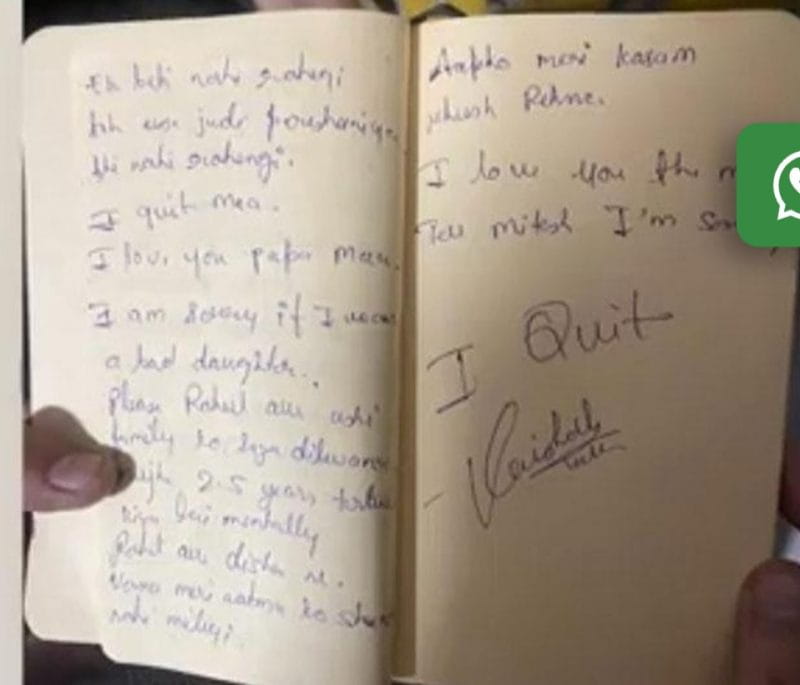 Ek beti nahi rahegi
toh usse judi
bhi nahi rahengi.
I quit maa.
I love you papa maa.
I am sorry if I was
a bad daughter..
Please Rahul aur uski
family ko saza dilwana
Mujhe 2.5 years
kiya hai mentally
Rahul aur disha ne.
Varna meri aatma ko
nahi milegi
Aapko meri kasam
khush Rehna.
I love you the
Tell mitesh I'm
I Quit